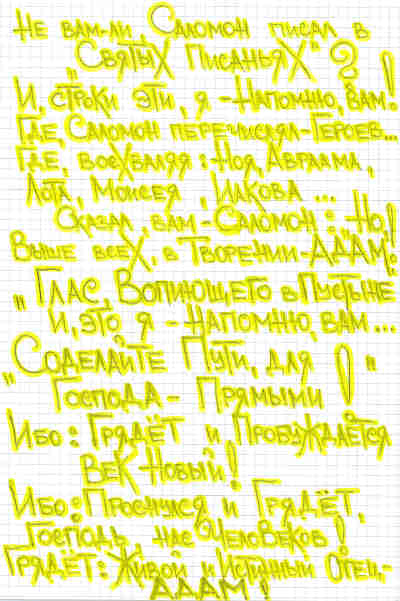 Не вам-ли, Саломон писал в
"Святых Писаньях"?
И, строки эти, я - Напомню, вам!
Где, Саломон перечислял-Героев...
Где, восхваляя: Ноя, Авраама,
Лота, Моисея, Иакова...
Сказал, вам - Саломон: -Но!
Выше всех, в Творении-АДАМ!
"Глас, Вопиющего в Пустыне"
И, это, я - напомню, вам...
"Соделайте Пути, для
Господа - Прямыми!"
Ибо: Грядёт и Пробуждается
Век Новый!
Ибо: Проснулся и Грядёт,
Господь, нас Человеков!
Грядёт: Живой и Истинный Отец,-
АДАМ!